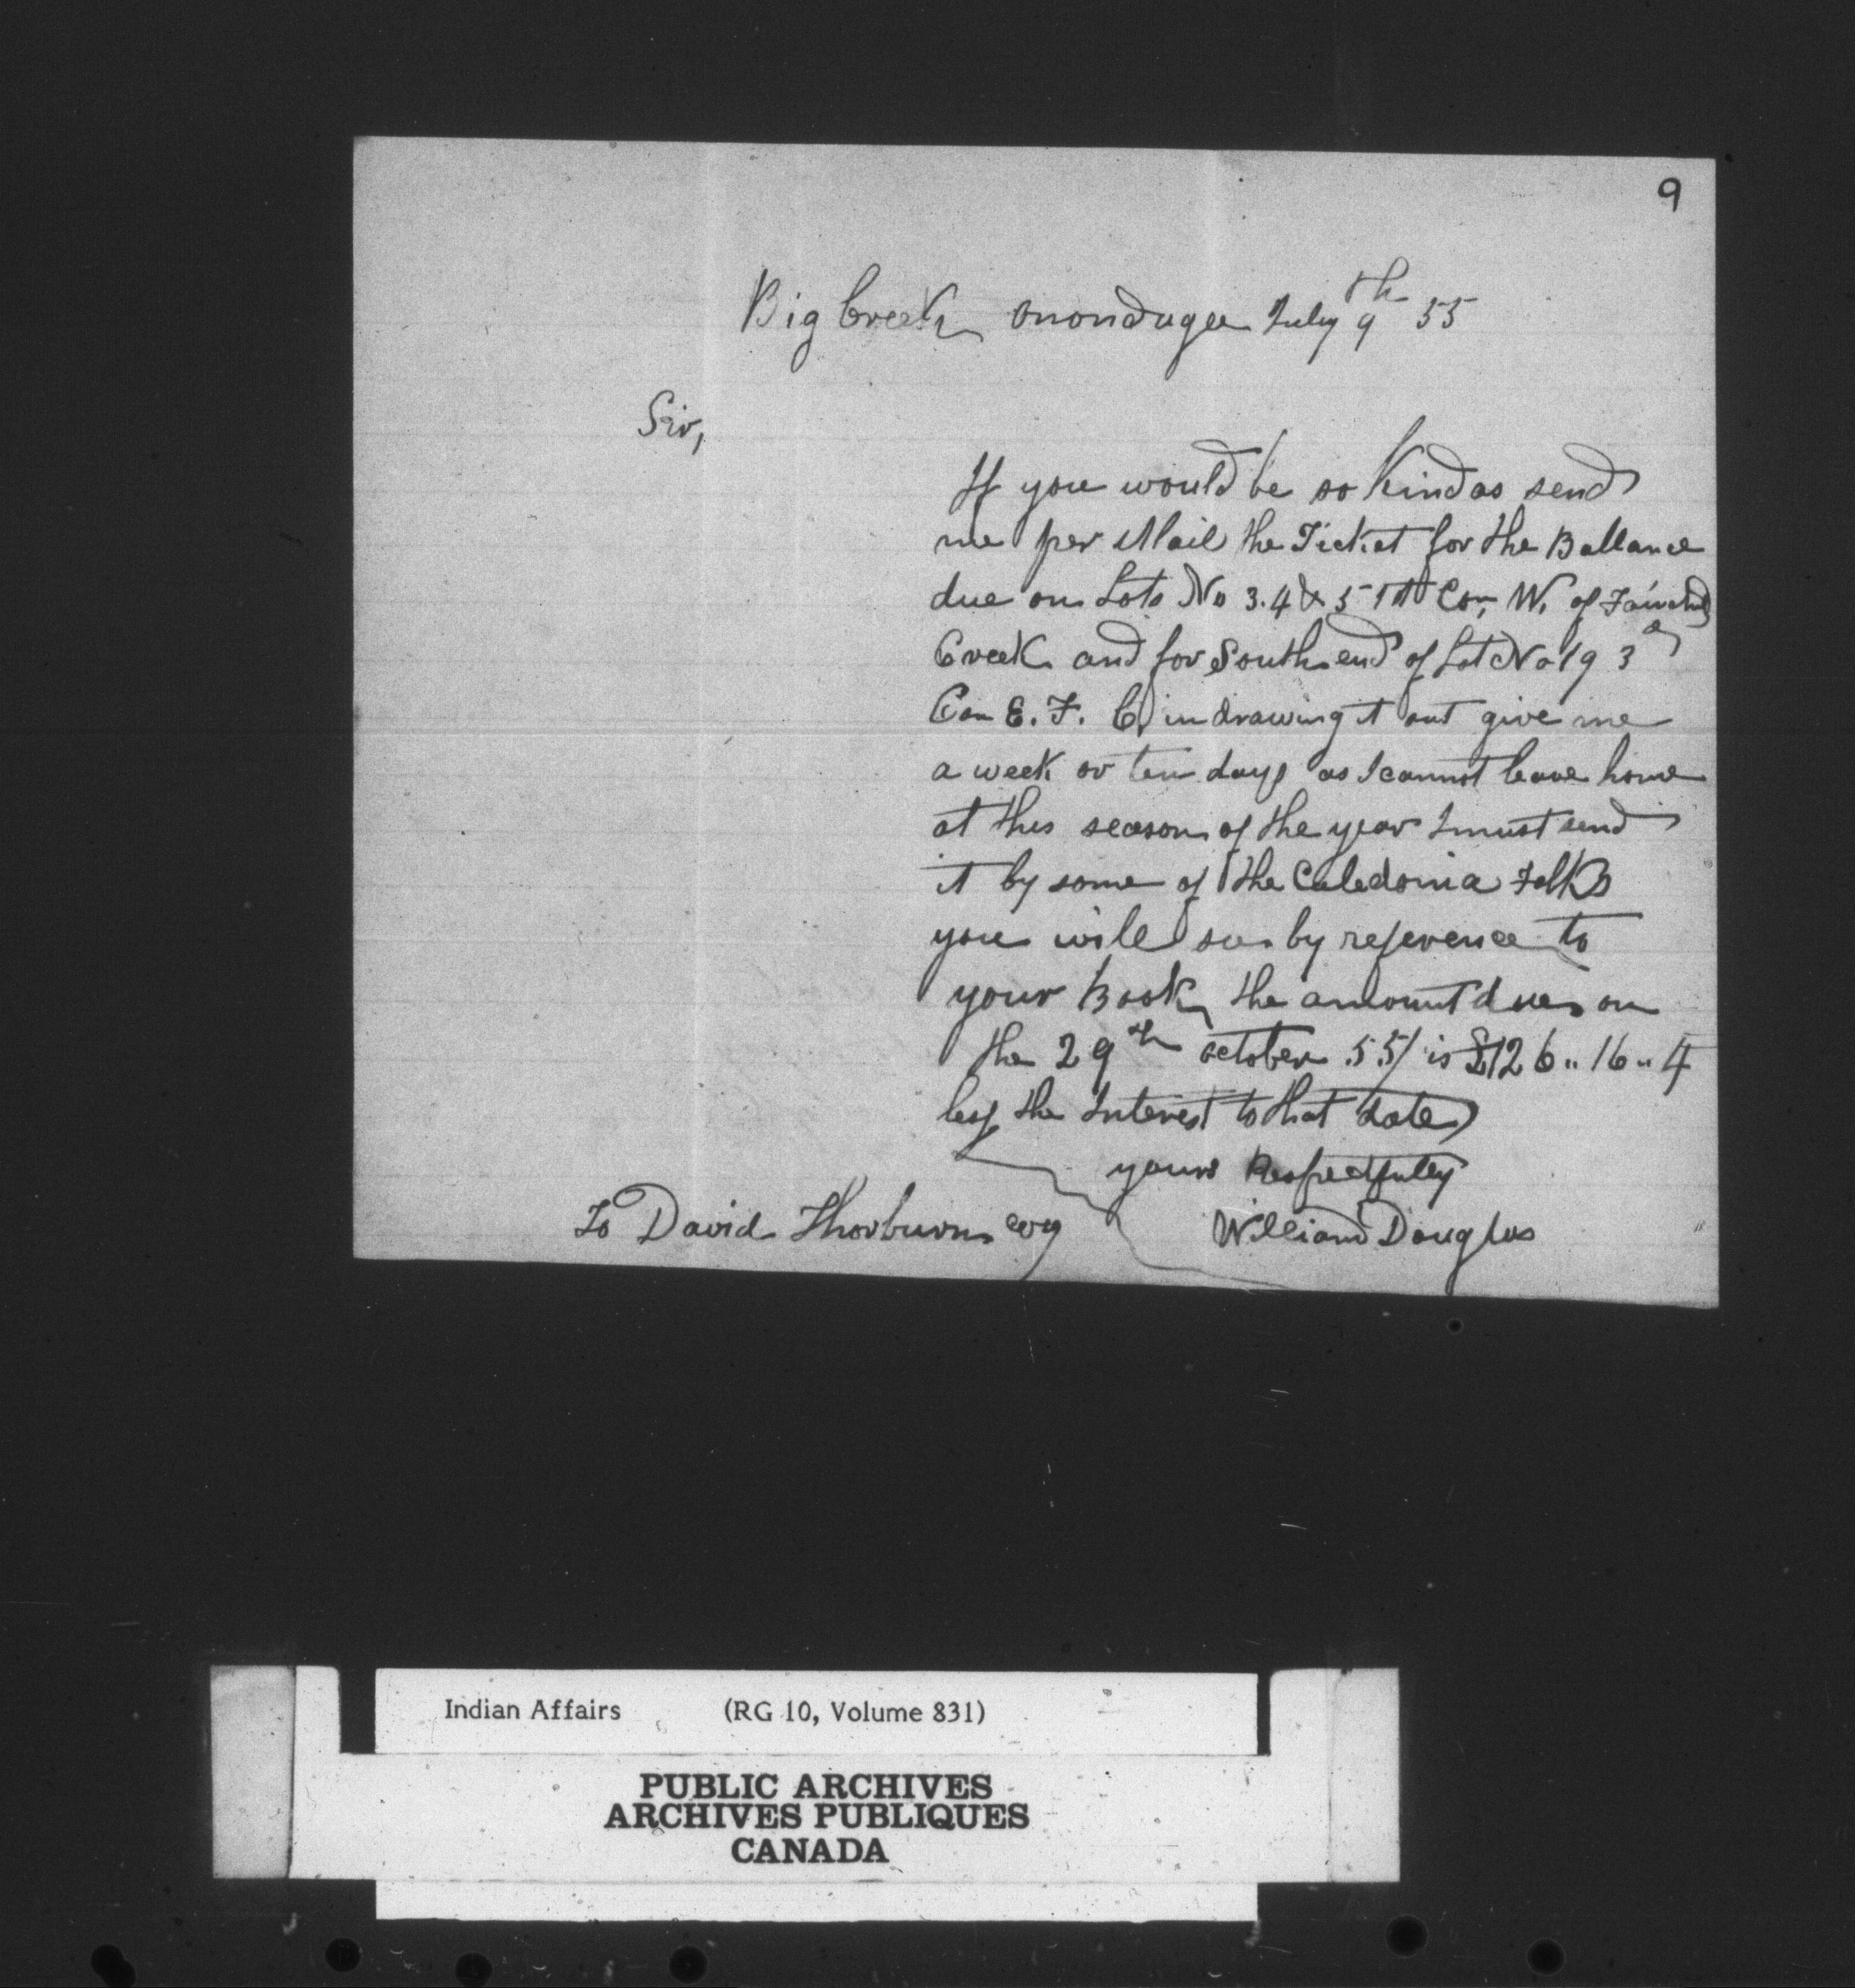 9
Big Creek onondagee July 9th 55
Sir,
If you would be so Kind as send
me per Mail the Ticket for the Ballance
due on Lots No 3. 4 & 5 1st Con, W. of Fairchild
Creek and for South end of Lot No 19 3d
Con E. F. C. in drawing it out give me
a week or ten days as I cannot leave home
at this season of the year I must send
it by some of the Caledonia Folks
you will see by reference to
your Book, the amount due on
the 29th october 55/ is £126 " 16 " 4
less the Interest to that date
yours Respectfuley
To David Thorburn esq William Douglas
Indian Affairs (RG 10, Volume 831)
PUBLIC ARCHIVES
ARCHIVES PUBLIQUES
CANADA